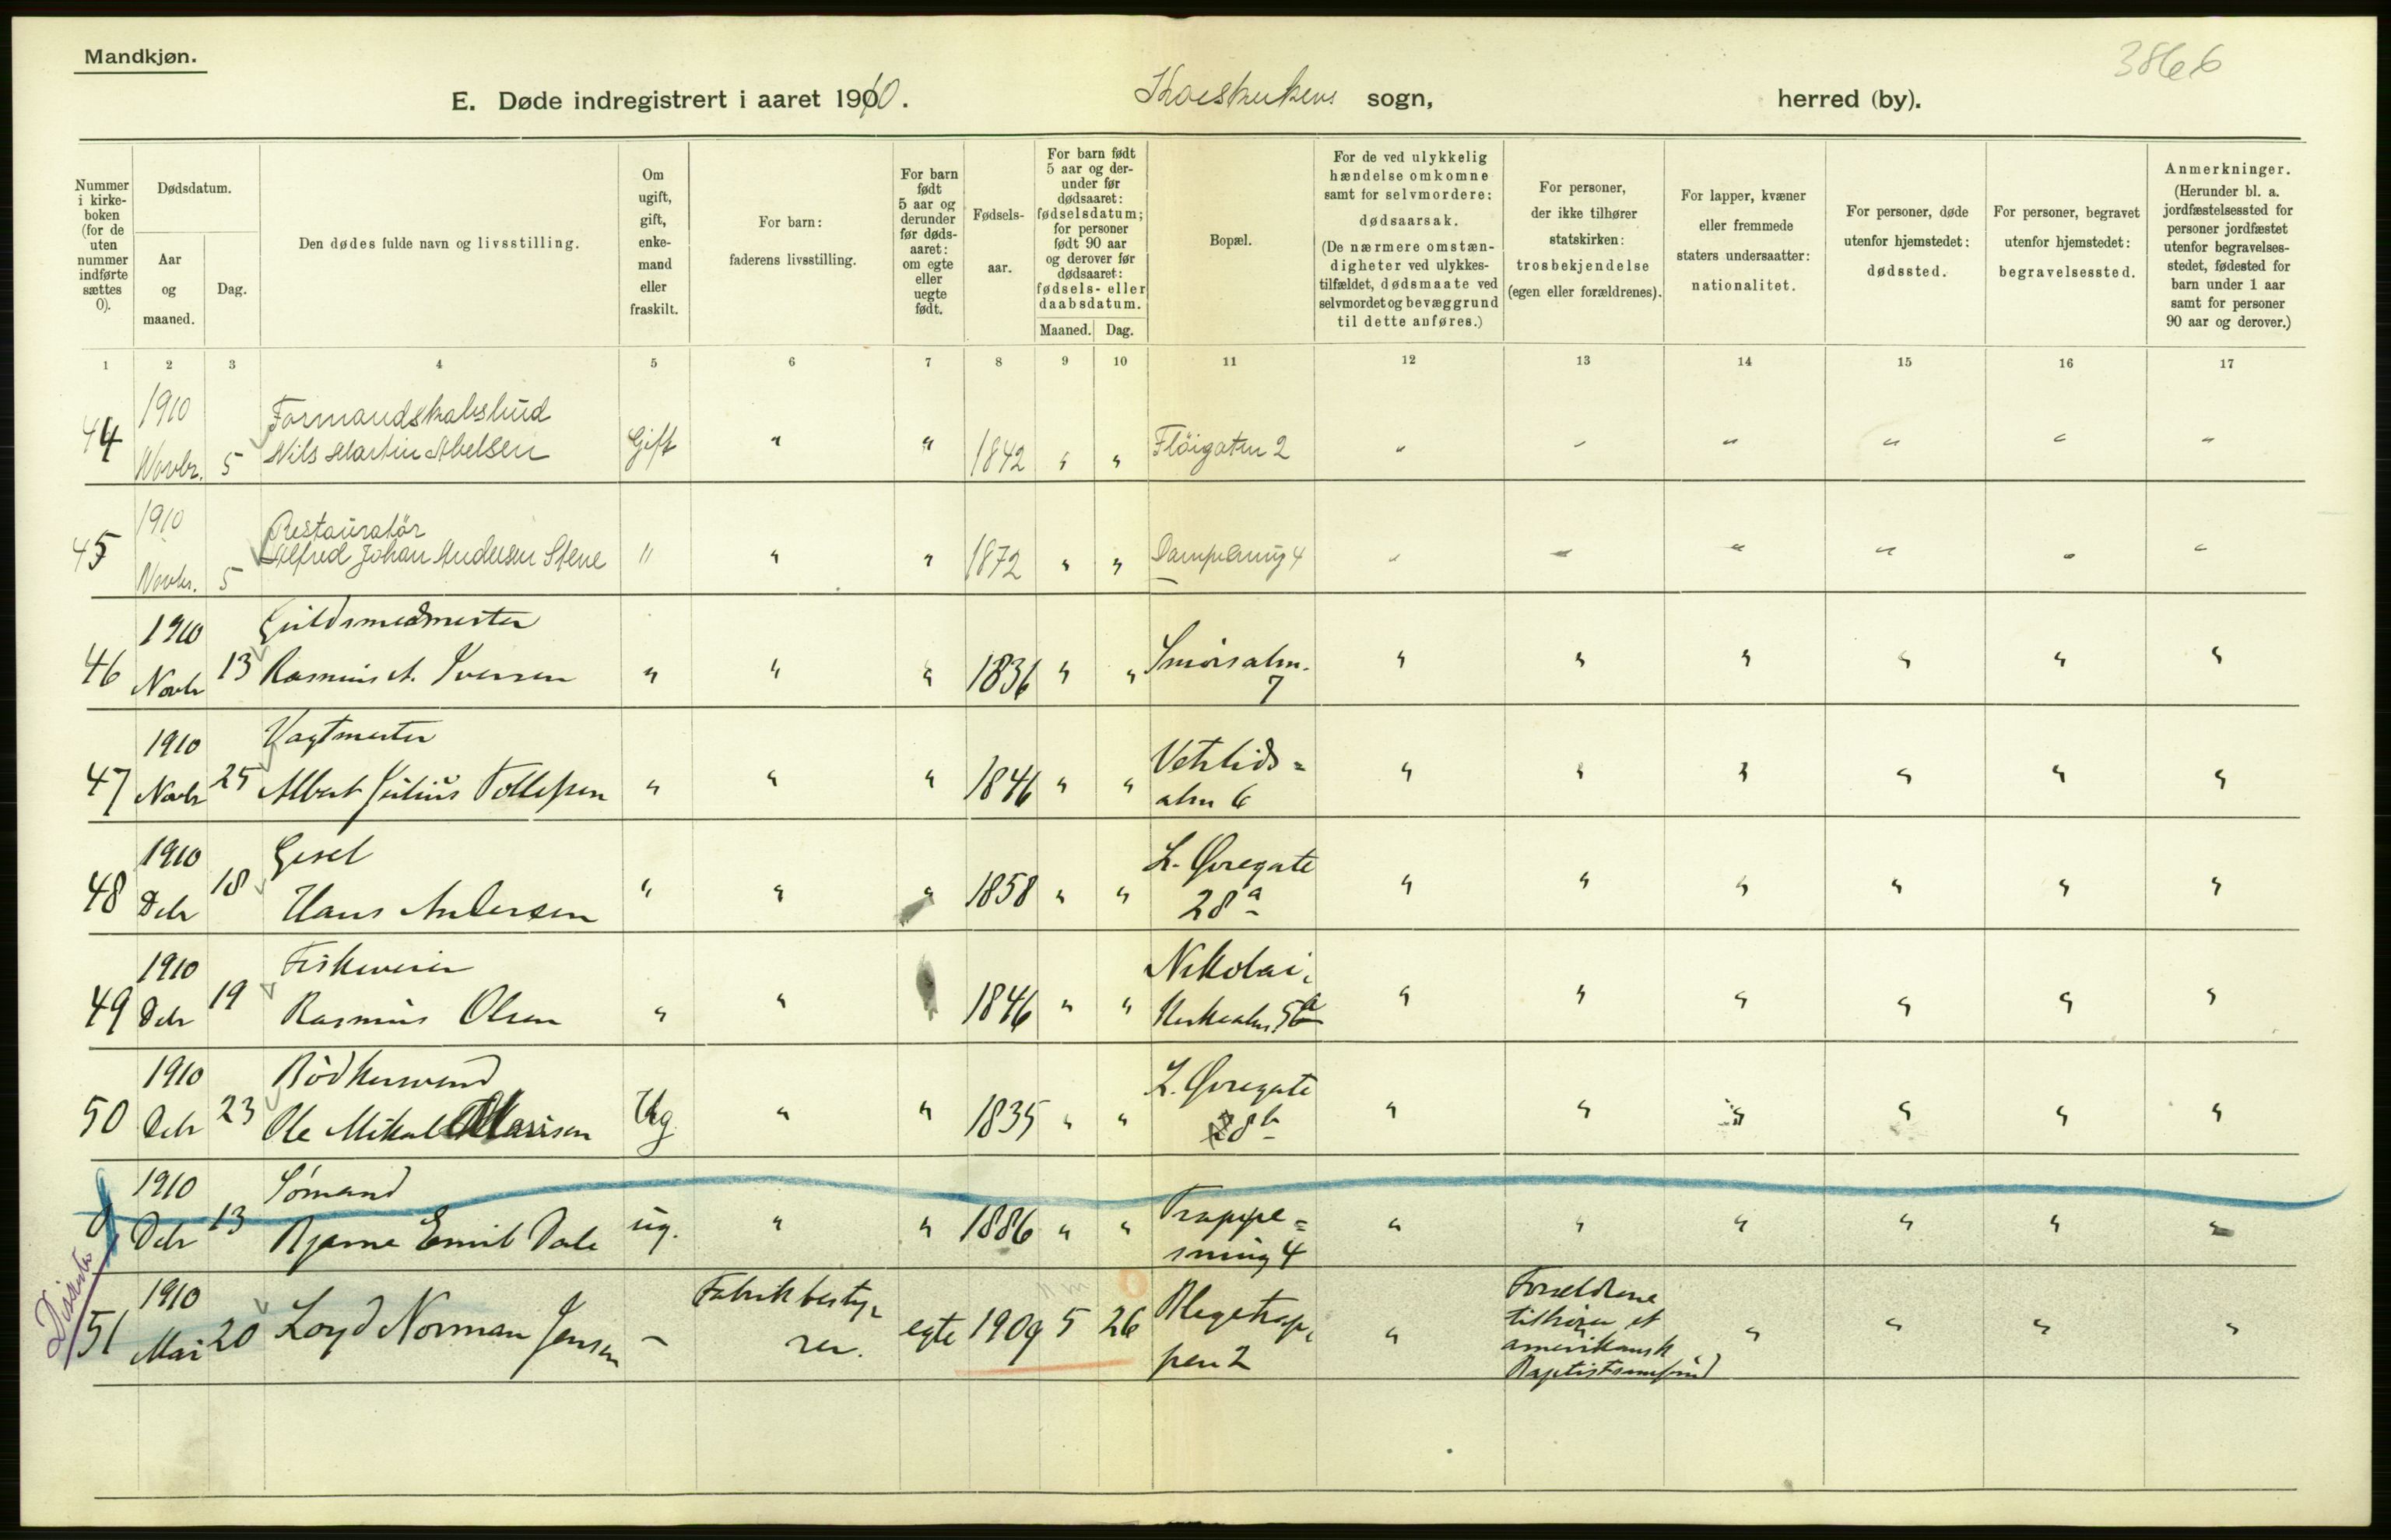 Mandkjøn.
3866
E. Døde indregistrert i aaret 1910. Korskirkens sogn, herred (by).
Nummer i kirkeboken (for de uten nummer indførte sættes 0).
Dødsdatum.
Aar og maaned.
Dag.
Den dødes fulde navn og livsstilling.
Om ugift, gift, enkemand eller fraskilt.
For barn: faderens livsstilling.
For barn født 5 aar og derunder før dødsaaret: om egte eller uegte født.
Fødselsaar.
For barn født 5 aar og derunder før dødsaaret: fødselsdatum; for personer født 90 aar og derover før dødsaaret: fødsels- eller daabsdatum.
Maaned. Dag.
Bopæl.
For de ved ulykkelig hændelse omkomne samt for selvmordere: dødsaarsak. (De nærmere omstændigheter ved ulykkestilfældet, dødsmaate ved selvmordet og bevæggrund til dette anføres.)
For personer, der ikke tilhører statskirken: trosbekjendelse (egen eller forældrenes).
For lapper, kvæner eller fremmede staters undersaatter: nationalitet.
For personer, døde utenfor hjemstedet: dødssted.
For personer, begravet utenfor hjemstedet: begravelsessted.
Anmerkninger. (Herunder bl. a. jordfæstelsessted for personer jordfæstet utenfor begravelsesstedet, fødested for barn under 1 aar samt for personer 90 aar og derover.)
1 2 3 4 5 6 7 8 9 10 11 12 13 14 15 16 17
1910 Formandskabsbud
44 Novbr. 5 Nils Martin Abelsen Gift " " 1842 " " Fløigaten 2 " " " " " "
1910 Restauratør
45 Novbr. 5 Alfred Johan Andersen Stene " " " 1872 " " Dampsmug 4 " " " " " "
1910 Guldsmedmester
46 Novbr 13 Rasmus A. Iversen " " " 1836 " " Smørsalm. 7 " " " " " "
1910 Vagtmester
47 Novbr 25 Albert Julius Tollefsen " " " 1846 " " Vetrlids= alm 6 " " " " " "
1910 Gesel
48 Debr 18 Hans Andersen " " " 1858 " " L. Øvregate 28a " " " " " "
1910 Fiskeveier
49 Debr 19 Rasmus Olsen " " 1846 " " Nikolai Kirkealm. 5a " " " " " "
1910 Bødkersvend
50 Debr 23 Ole Mikal Ug " " 1835 " " L. Øvregate 28b " " " " " "
1910 Sømand
0 Debr 13 Bjarne Emil Dale ug. " " 1886 " " Trappe= smug 4 " " " " " "
Dissenter
1910
51 Mai 20 Loyd Norman Jensen - Fabrikbestyrer. egte 1909 5 26 Blegetrappen 2 " Forældrene tilhører et amerikansk Baptistsamfund " " " "